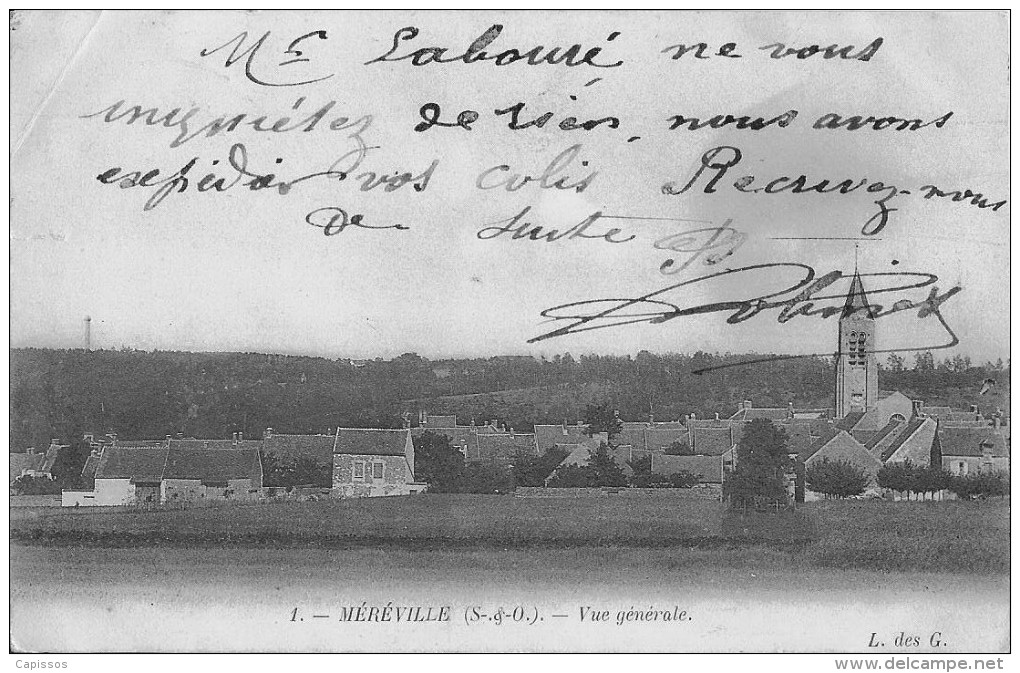 Me Labouré, ne vous
inquiétez de rien, nous avons
expédier vos colis Recrivez-nous
De suite
1. — MÉRÉVILLE (S-.&-O.). — Vue générale.
L. des G.
Capissos
www.delcampe.net